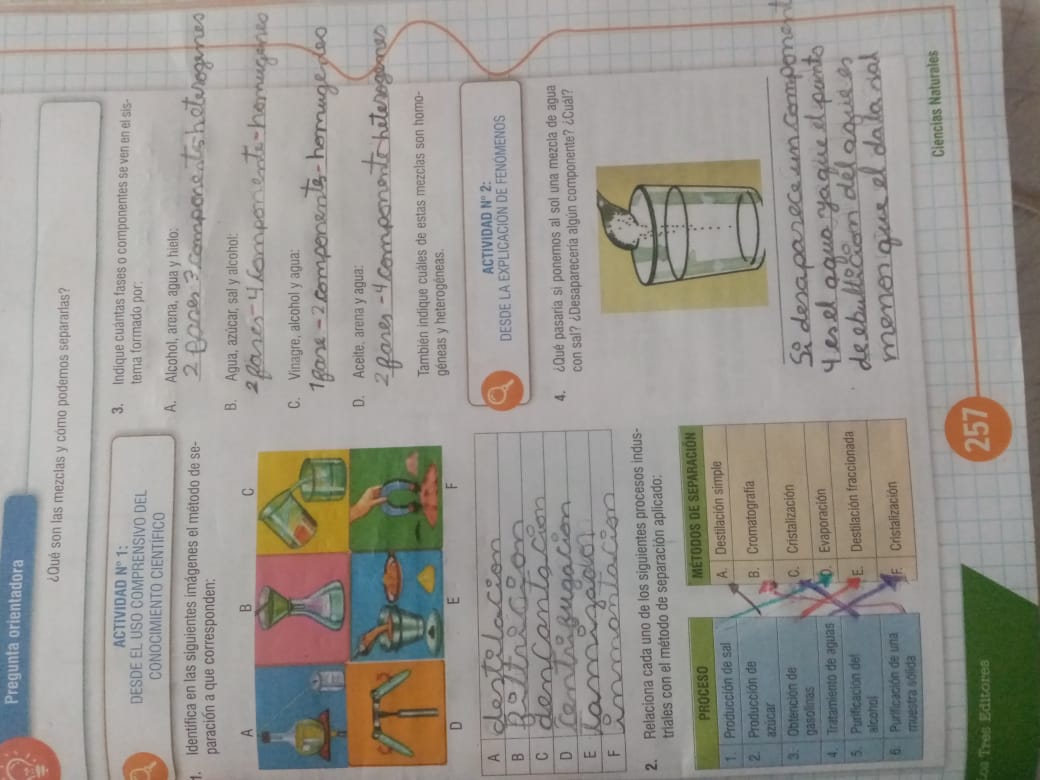 Pregunta orientadora
¿Qué son las mezclas y cómo podemos separarlas?
ACTIVIDAD N° 1:
DESDE EL USO COMPRENSIVO DEL
CONOCIMIENTO CIENTÍFICO
1. Identifica en las siguientes imágenes el método de se-
paración a que corresponden:
A B C
D E F
A destilacion
B filtricion
C dencantacion
D centrifugacion
E tamizador
F inmantacion
2. Relaciona cada uno de los siguientes procesos indus-
triales con el método de separación aplicado:
PROCESO MÉTODOS DE SEPARACIÓN
1. Producción de sal A. Destilación simple
2. Producción de
azúcar B. Cromatografía
3. Obtención de
gasolinas C. Cristalización
4. Tratamiento de aguas D. Evaporación
5. Purificación del
alcohol E. Destilación fraccionada
6. Purificación de una
muestra sólida F. Cristalización
3. Indique cuántas fases o componentes se ven en el sis-
tema formado por:
A. Alcohol, arena, agua y hielo:
2 fases-3 components heterogenes
B. Agua, azúcar, sal y alcohol:
2 fases-4 componente-homugenes
C. Vinagre, alcohol y agua:
1 fase-2 componentes-homugedes
D. Aceite, arena y agua:
2 fases-4 componento heterogenes
También indique cuáles de estas mezclas son homo-
géneas y heterogéneas.
ACTIVIDAD N° 2:
DESDE LA EXPLICACIÓN DE FENÓMENOS
4. ¿Qué pasaría si ponemos al sol una mezcla de agua
con sal? ¿Desaparecería algún componente? ¿Cuál?
Si desaparece un component
y es el agua ya que el punto
de ebullicion del agua es
menor que el da la sal
Ciencias Naturales
257
Tres Editores